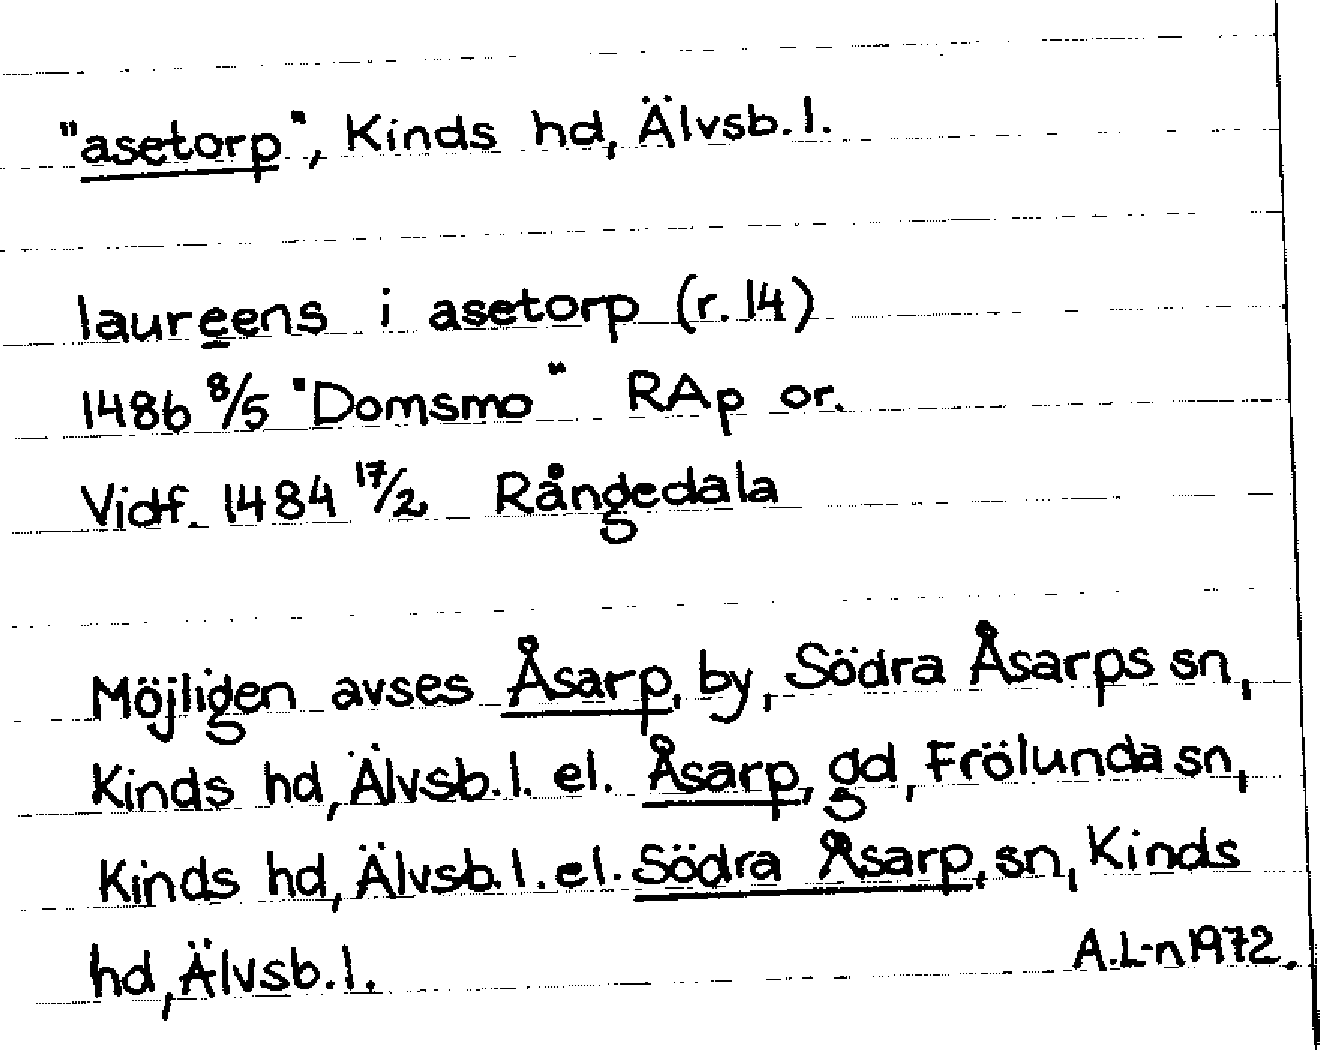 "asetorp", Kinds hd, Älvsb. l.
laureens i asetorp (r. 14)
1486 8/5 "Domsmo" RAp or.
Vidf. 1484 17/2 Rångedala
Möjligen avses Åsarp, by, Södra Åsarps sn,
Kinds hd, Älvsb. l. el. Åsarp, gd, Frölunda sn,
Kinds hd, Älvsb. l. el. Södra Åsarp, sn, Kinds
hd, Älvsb. l. A.L-n 1972.